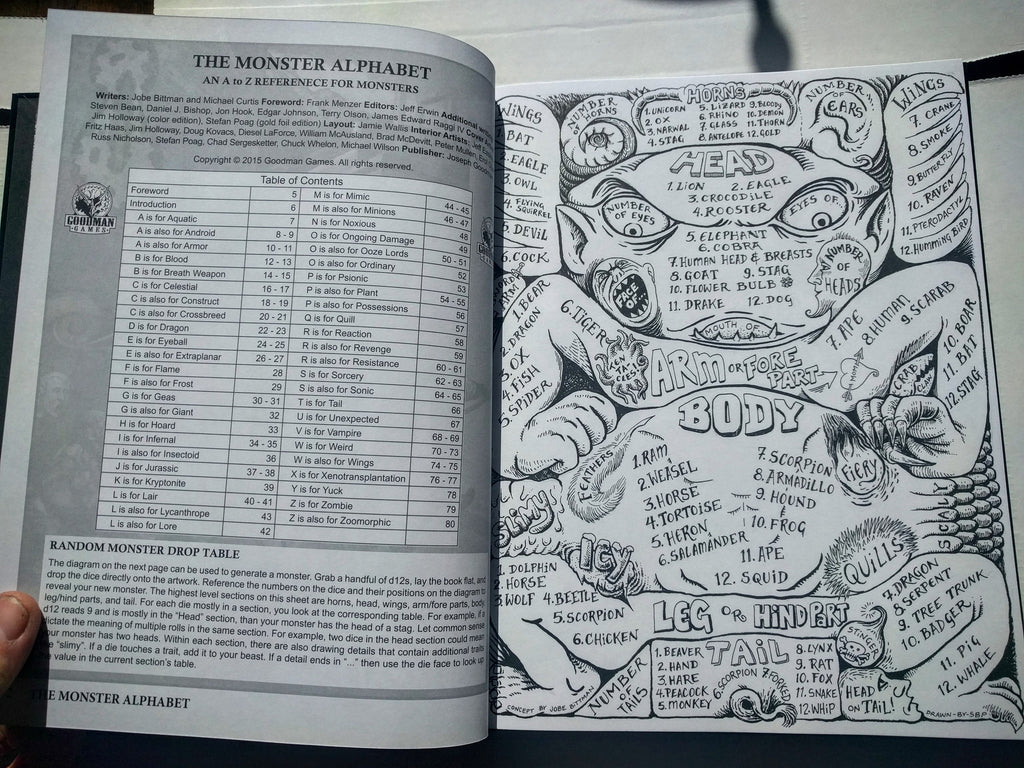 THE MONSTER ALPHABET
AN A to Z REFERENECE FOR MONSTERS
Writers: Jobe Bittman and Michael Curtis Foreword: Frank Menzer Editors: Jeff Erwin Additional
Steven Bean, Daniel J. Bishop, Jon Hook, Edgar Johnson, Terry Olson, James Edward Raggi IV
Jim Holloway (color edition), Stefan Poag (gold foil edition) Layout: Jamie Wallis Interior Artists:
Fritz Haas, Jim Holloway, Doug Kovacs, Diesel LaForce, William McAusland, Brad McDevitt, Peter Mullen,
Russ Nicholson, Stefan Poag, Chad Sergesketter, Chuck Whelon, Michael Wilson Publisher: Joseph
Copyright © 2015 Goodman Games. All rights reserved.
GOODMAN
GAMES
Table of Contents
Foreword 5
Introduction 6
A is for Aquatic 7
A is also for Android 8 - 9
A is also for Armor 10 - 11
B is for Blood 12 - 13
B is for Breath Weapon 14 - 15
C is for Celestial 16 - 17
C is also for Construct 18 - 19
C is also for Crossbreed 20 - 21
D is for Dragon 22 - 23
E is for Eyeball 24 - 25
E is also for Extraplanar 26 - 27
F is for Flame 28
F is also for Frost 29
G is for Geas 30 - 31
G is also for Giant 32
H is for Hoard 33
I is for Infernal 34 - 35
I is also for Insectoid 36
J is for Jurassic 37 - 38
K is for Kryptonite 39
L is for Lair 40 - 41
L is also for Lycanthrope 43
L is also for Lore 42
M is for Mimic 44 - 45
M is also for Minions 46 - 47
N is for Noxious 48
O is for Ongoing Damage 49
O is also for Ooze Lords 50 - 51
O is also for Ordinary 52
P is for Psionic 53
P is also for Plant 54 - 55
P is also for Possessions 56
Q is for Quill 57
R is for Reaction 58
R is also for Revenge 59
R is also for Resistance 60 - 61
S is for Sorcery 62 - 63
S is also for Sonic 64 - 65
T is for Tail 66
U is for Unexpected 67
V is for Vampire 68 - 69
W is for Weird 70 - 73
W is also for Wings 74 - 75
X is for Xenotransplantation 76 - 77
Y is for Yuck 78
Z is for Zombie 79
Z is also for Zoomorphic 80
RANDOM MONSTER DROP TABLE
The diagram on the next page can be used to generate a monster. Grab a handful of d12s, lay the book flat, and
drop the dice directly onto the artwork. Reference the numbers on the dice and their positions on the diagram to
reveal your new monster. The highest level sections on this sheet are horns, head, wings, arm/fore parts, body,
leg/hind parts, and tail. For each die mostly in a section, you look at the corresponding table. For example, if a
d12 reads 9 and is mostly in the "Head" section, than your monster has the head of a stag. Let common sense
dictate the meaning of multiple rolls in the same section. For example, two dice in the head section could mean
your monster has two heads. Within each section, there are also drawing details that contain additional traits
"slimy". If a die touches a trait, add it to your beast. If a detail ends in "..." then use the die face to look up
value in the current section's table.
THE MONSTER ALPHABET
WINGS
BAT
2. EAGLE
3. OWL
4. FLYING SQUIRREL
5. DEVIL
6. COCK
NUMBER OF HORNS
HORNS
1. UNICORN
2. OX
3. NARWAL
4. STAG
5. LIZARD
6. RHINO
7. GLASS
8. ANTELOPE
9. BLOODY
10. DEMON
11. THORN
12. GOLD
NUMBER... EARS
WINGS
7. CRANE
8. SMOKE
9. BUTTERFLY
10. RAVEN
11. PTERODACTYL
12. HUMMING BIRD
HEAD
1. LION 2. EAGLE
3. CROCODILE
4. ROOSTER
5. ELEPHANT
6. COBRA
7. HUMAN HEAD & BREASTS
8. GOAT 9. STAG
10. FLOWER BULB
11. DRAKE 12. DOG
NUMBER OF EYES
EYES OF...
FACE OF...
NUMBER OF HEADS
MOUTH OF...
ARM OR FORE PART
1. BEAR
2. DRAGON
3. OX
4. FISH
5. SPIDER
6. TIGER
TENTACLES!
7. APE
8. HUMAN
9. SCARAB
10. BOAR
11. BAT
12. STAG
CRAB CLAW
BODY
1. RAM
2. WEASEL
3. HORSE
4. TORTOISE
5. HERON
6. SALAMANDER
7. SCORPION
8. ARMADILLO
9. HOUND
10. FROG
11. APE
12. SQUID
FEATHERS
FIERY
SLIMY
ICY
QUILLS
SCALY
LEG OR HIND PART
1. DOLPHIN
2. HORSE
3. WOLF 4. BEETLE
5. SCORPION
6. CHICKEN
7. DRAGON
8. SERPENT
9. TREE TRUNK
10. BADGER
11. PIG
12. WHALE
STINGER
TAIL
1. BEAVER
2. HAND
3. HARE
4. PEACOCK
5. MONKEY
6. SCORPION
7. FORKED
8. LYNX
9. RAT
10. FOX
11. SNAKE
12. WHIP
NUMBER OF TAILS
HEAD ON TAIL!
CONCEPT BY JOBE BITTMAN
DRAWN-BY-SBP